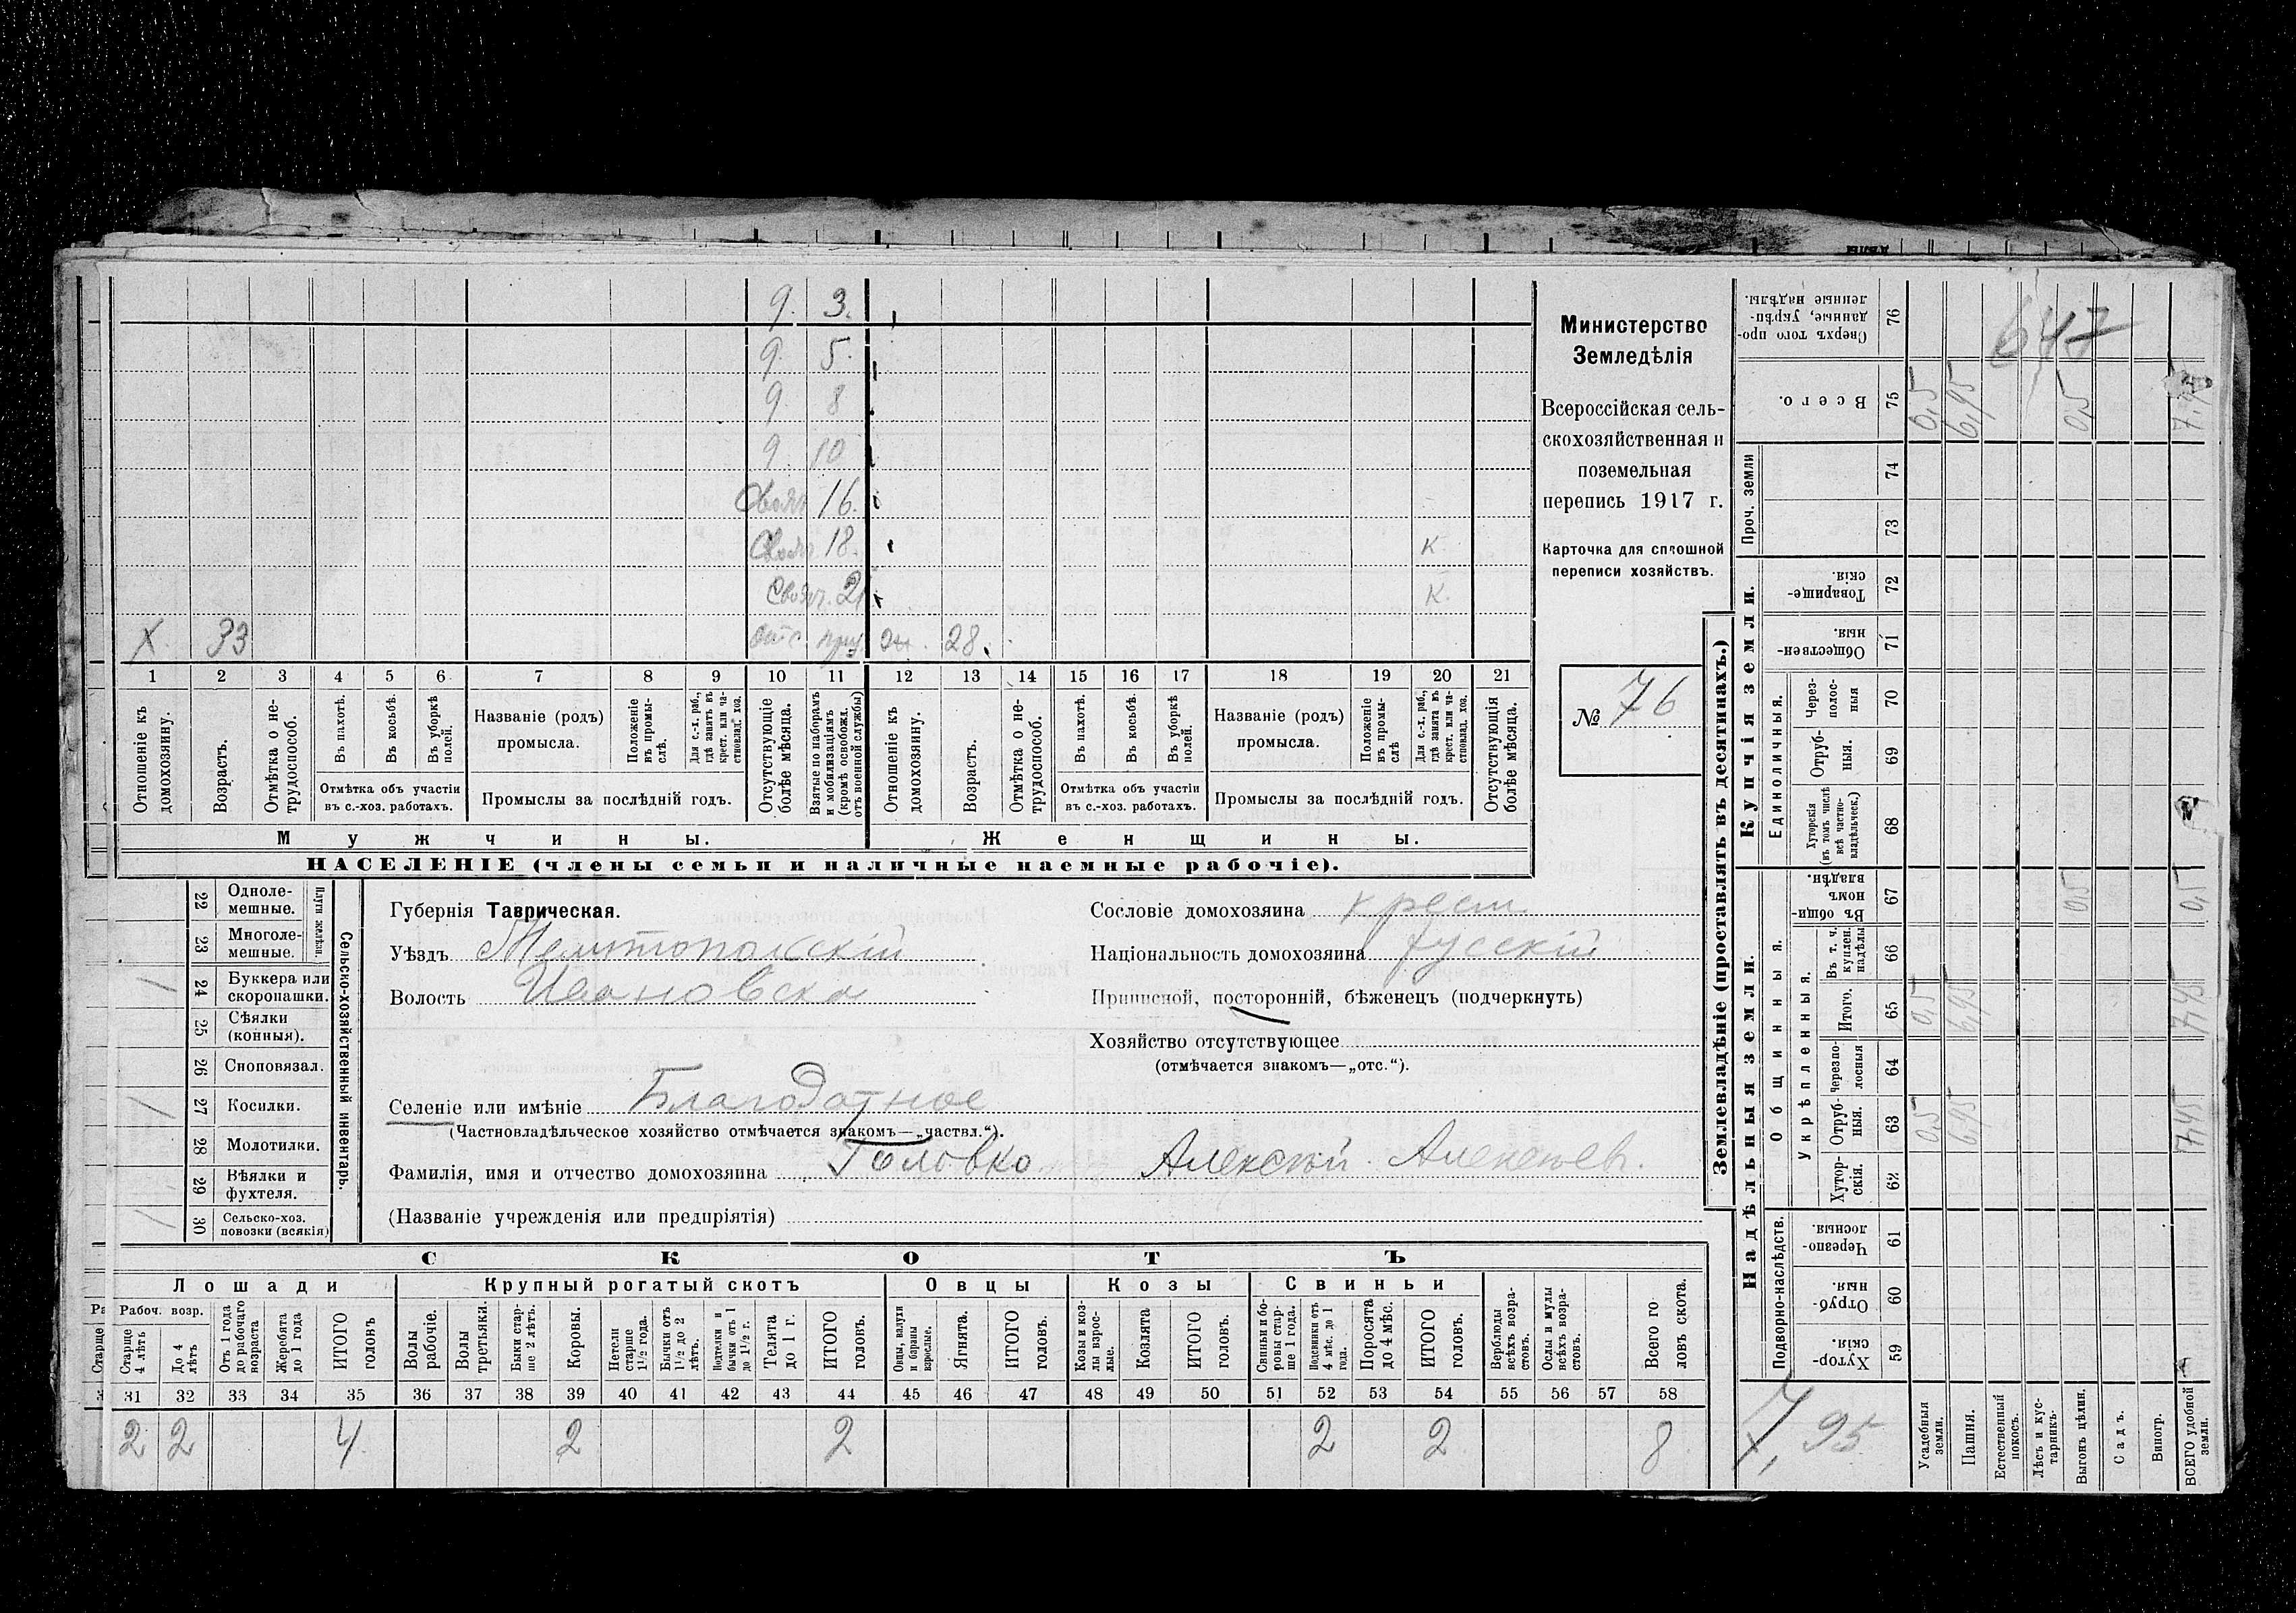 д. 3.
д. 5.
д. 8
д. 10
Своя 16.
18. К.
Своя. 21 К.
Х. 33 отс. ж. 28.
1 2 3 4 5 6 7 8 9 10 11 12 13 14 15 16 17 18 19 20 21
Отношеніе къ домохозяину.
Возрастъ.
Отмѣтка о не-трудоспособ.
Въ пахотѣ.
Въ косьбѣ.
Въ уборкѣ полей.
Отмѣтка объ участіи
въ с.-хоз. работахъ.
Названіе (родъ)
промысла.
Положеніе въ промы-слѣ.
Для с.-х. раб., гдѣ занятъ въ крест. или ча-стновлад. хоз.
Промыслы за послѣдній годъ.
Отсутствующіе болѣе мѣсяца.
Взятые по наборамъ и мобилизаціямъ (кромѣ освобожд. отъ военной службы)
Отношеніе къ домохозяину.
Возрастъ.
Отмѣтка о не-трудоспособ.
Въ пахотѣ.
Въ косьбѣ.
Въ уборкѣ полей.
Отмѣтка объ участіи
въ с.-хоз. работахъ.
Названіе (родъ)
промысла.
Положеніе въ промы-слѣ
Для с.-х. раб., гдѣ занята въ крест. или ча-стновлад. хоз.
Промыслы за послѣдній годъ.
Отсутствующія болѣе мѣсяца.
Мужчины. Женщины.
НАСЕЛЕНІЕ (члены семьи и наличные наемные рабочіе).
Министерство
Земледѣлія
Всероссійская сель-
скохозяйственная и
поземельная
перепись 1917 г.
Карточка для сплошной
переписи хозяйствъ.
№ 76
22 Одноле-мешные.
23 Многоле-мешные.
Плуги желѣзн.
24 Буккера или скоропашки.
25 Сѣялки (конныя).
26 Сноповязал.
27 Косилки.
28 Молотилки.
29 Вѣялки и фухтеля.
30 Сельско-хоз. повозки (всякія)
Сельско-хозяйственный инвентарь.
Губернія Таврическая.
Уѣздъ Мелитопольскій
Волость Ивановска
Сословіе домохозяина крест.
Національность домохозяина русскій
Приписной, посторонній, бѣженецъ (подчеркнуть)
Хозяйство отсутствующее
(отмѣчается знакомъ—„отс.“).
Селеніе или имѣніе Благодатное
(Частновладѣльческое хозяйство отмѣчается знакомъ—„частвл.“).
Фамилія, имя и отчество домохозяина Головко Алексѣй Алексѣев.
(Названіе учрежденія или предпріятія)
СКОТЪ
Лошади Крупный рогатый скотъ Овцы Козы Свиньи
Рабоч. возр.
Старше 4 лѣтъ
До 4 лѣтъ
Отъ 1 года до рабочаго возраста
Жеребята до 1 года
ИТОГО головъ
Волы рабочіе.
Волы третьяки.
Быки стар-ше 2 лѣтъ.
Коровы.
Нетели старше 1½ года.
Бычки отъ 1½ до 2 лѣтъ.
Подтелки и бычки отъ 1 до 1½ г.
Телята до 1 г.
ИТОГО головъ.
Овцы, валухи и бараны взрослые.
Ягнята.
ИТОГО головъ.
Козы и коз-лы взрос-лые.
Козлята
ИТОГО головъ.
Свиньи и бо-ровы стар-ше 1 года.
Подсвинки отъ 4 мѣс. до 1 года.
Поросята до 4 мѣс.
ИТОГО головъ.
Верблюды всѣхъ возра-стовъ.
Ослы и мулы всѣхъ возра-стовъ.
Всего го ловъ скота.
31 32 33 34 35 36 37 38 39 40 41 42 43 44 45 46 47 48 49 50 51 52 53 54 55 56 57 58
2 2 4 2 2 2 2 8
Землевладѣніе (проставлять въ десятинахъ.)
Сверхъ того про-данные, укрѣп-ленные надѣлы. 76
647
Всего. 75 0,5 6,95 0,5 7,95
Проч. земли 74
73
Купчія земли.
Товарище-скія. 72
Обществен-ныя. 71
Единоличныя.
Через-полос-ныя 70
Отруб-ныя. 69
Хуторскія (въ томъ числѣ всѣ частно-владѣльческ.) 68
Надѣльныя земли.
Общинныя.
Въ общин-номъ владѣн. 67 0,5 0,5
Укрѣпленныя.
Въ т. ч. куплен. надѣлы 66
Итого. 65 0,5 6,95 7,45
Черезпо-лосныя 64
Отруб-ныя. 63 0,5 6,95 7,45
Хутор-скія. 62
Подворно-наслѣдств.
Черезпо-лосныя. 61
Отруб-ныя. 60
Хутор-скія. 59
7,95
Усадебныя земли.
Пашня.
Естественный покосъ.
Лѣсъ и кус-тарникъ.
Выгонъ цѣлин.
Садъ.
Виногр.
ВСЕГО удобной земли.